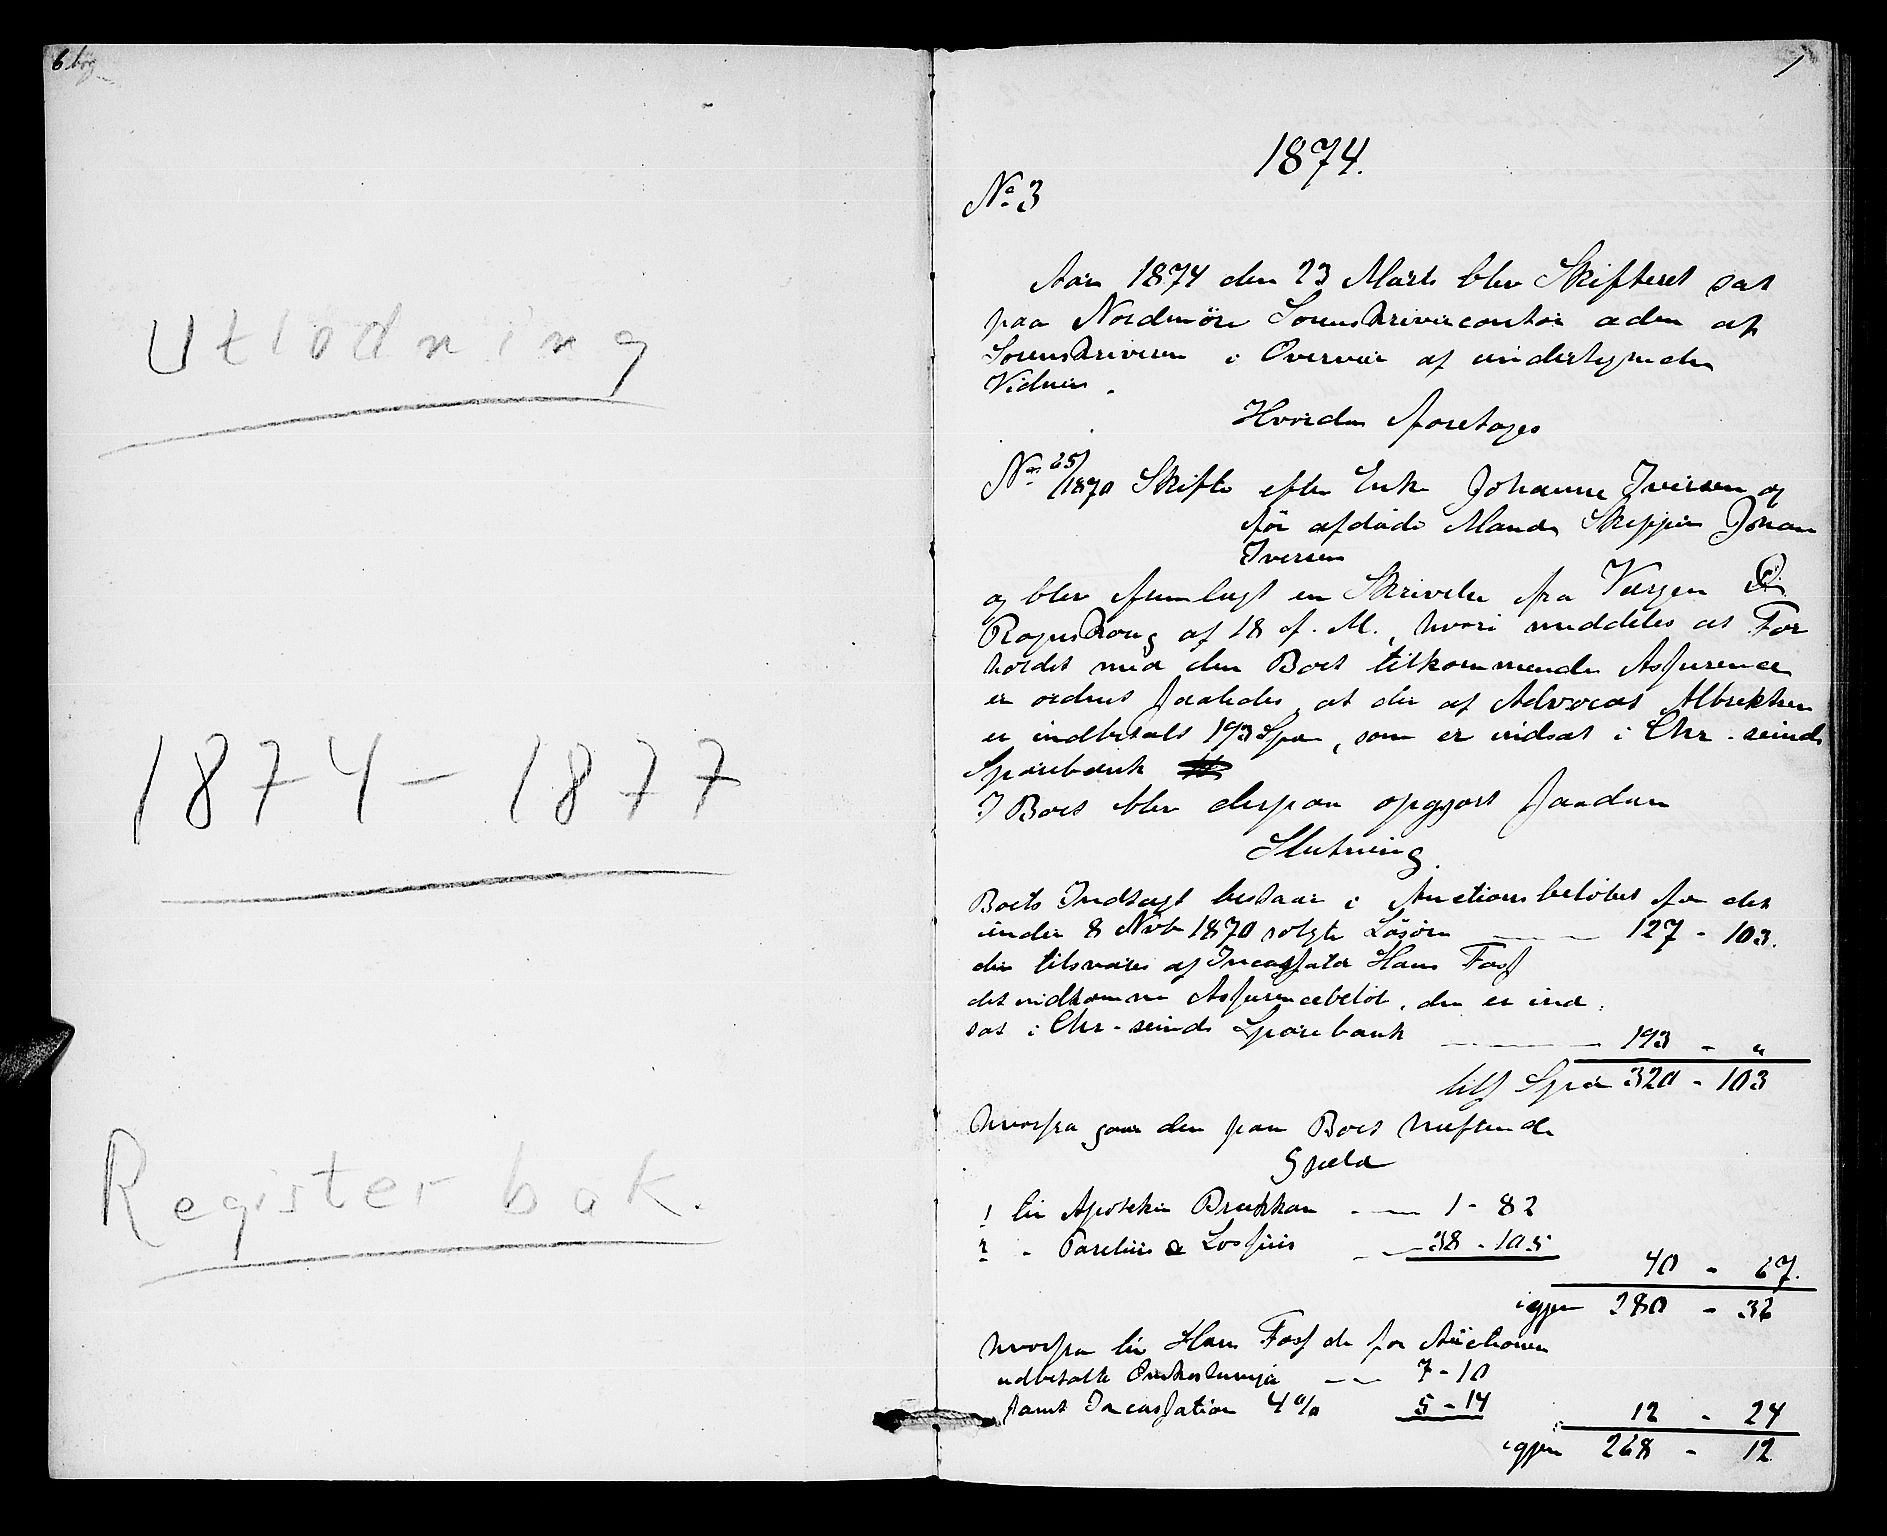 Utlodning
1874 - 1877
Register bak.
1
1874.
No 3
Aar 1874 den 23 Marts blev Skifteret sat
paa Nordmöre Sorenskrivercontor af
Sorenskriveren i Overvær af undertegnede
Vidner.
Hvorda foretoges
No 25/1870 Skifte efter Enke Johanne Iversen og
før afdøde Mand Skipper Johan
Iversen
og blev fremlagt en Skrivelse fra Værgen
af 18 d. M., hvori meddeles at For
holdet med den Boet tilkommende Assurence
er ordnet saaledes, at der af Advocat Albrektsen
er indbetalt 193 Spd, som er indsat i Chr.sunds
Sparebank
I Boet blev derpaa opgjort saadan
Slutning.
Boets Indtægt bestaar i Auctionsbeløbet for det
under 8 Novb 1870 solgte Løsøre — 127 - 103.
der tilsvares af Incassator Hans Foss
det indkomne Assurencebeløb, der er ind
sat i Chr-sunds Sparebank — 193 - "
tils Spd 320 - 103
hvorfra gaar den paa Boet heftende
Gjæld
1 til Apotheker Brækkan — 1 - 82
2 - Parelius & Lossius — 38 - 105
40 - 67.
igjen 280 - 36
hvorfra til Hans Foss de for Auctionen
udbetalte Omkostninger — 7 - 10
samt Incassation 4 % 5 - 14
12 - 24
igjen 268 - 12